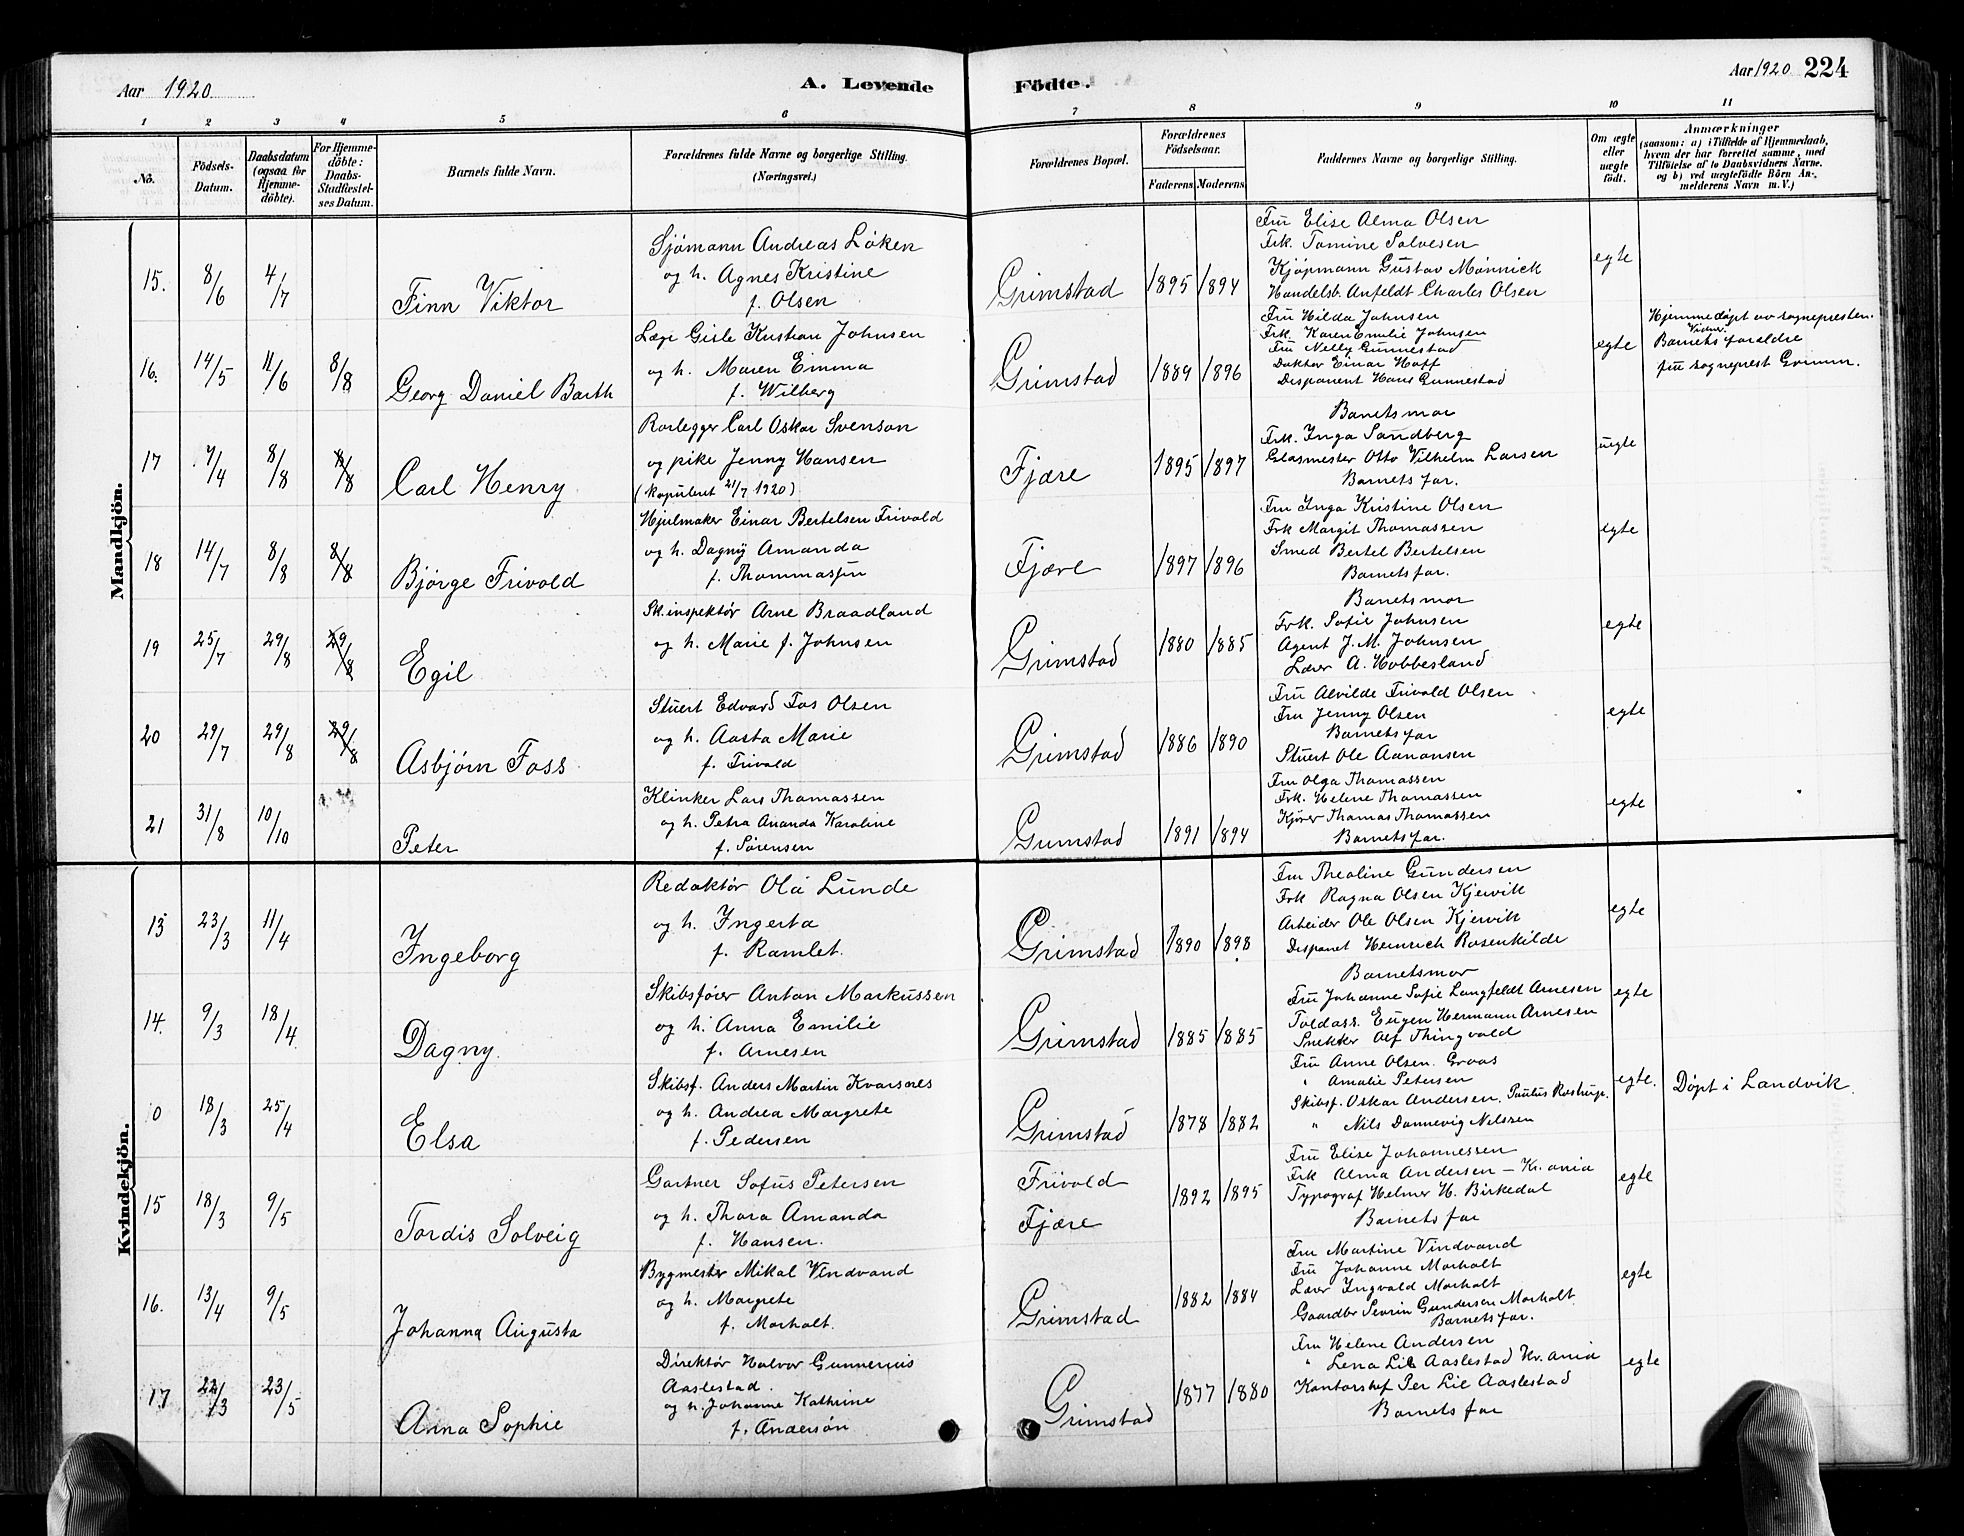 Aar 1920
A. Levende
Födte.
Aar 1920 224
1 2 3 4 5 6 7 8 9 10 11
No.
Födsels-
Datum.
Daabsdatum
(ogsaa for
Hjemme-
döbte).
For Hjemme-
döbte:
Daabs-
Stadfæstel-
ses Datum.
Barnets fulde Navn.
Forældrenes fulde Navne og borgerlige Stilling.
(Næringsvei.)
Forældrenes Bopæl.
Forældrenes
Födselsaar.
Faderens Moderens
Faddernes Navne og borgerlige Stilling.
Om ægte
eller
uægte
födt.
Anmærkninger
(saasom: a) i Tilfælde af Hjemmedaab,
hvem der har forrettet samme, med
Tilföielse af to Daabsvidners Navne,
og b) ved uægtefödte Börn An-
melderens Navn m. V.)
Mandkjön.
15. 8/6 4/7
Finn Viktor
Sjømann Andreas Løken
og h. Agnes Kristine
f. Olsen
Grimstad 1895 1894
Fru Elise Alma Olsen
Frk. Tomine Salvesen
Kjøpmann Gustav Mønnick
Handelsb. Anfeldt Charles Olsen
egte
16. 14/5 11/6 8/8
Georg Daniel Barth
Læge Gisle Kristian Johnsen
og h. Maren Emma
f. Wilberg
Grimstad 1889 1896
Fru Hilda Johnsen
Frk. Karen Emilie Johnsen
Fru Nelly Gunnestad
Doktor Einar Hoff
Disponent Hans Gunnestad
egte
Hjemmedøpt av sognepresten.
Vidner:
Barnets foraldre
fru sogneprest Grimm.
17 7/4 8/8 8/8
Carl Henry
Rørlegger Carl Oskar Svenson
og pike Jenny Hansen
(kopuleret 21/7 1920)
Fjære 1895 1897
Barnets mor
Frk. Inga Sandberg
Glasmester Otto Vilhelm Larsen
Barnets far.
uegte
18 14/7 8/8 8/8
Bjørge Frivold
Hjulmaker Einar Bertelsen Frivold
og h. Dagny Amanda
f. Thommassen
Fjære 1897 1896
Fru Inga Kristine Olsen
Frk Margit Thomassen
Smed Bertel Bertelsen
Barnets far.
egte
19 25/7 29/8 29/8
Egil
Sk.inspektør Arne Braadland
og h. Marie f. Johnsen
Grimstad 1880 1885
Barnets mor
Frk. Sofie Johnsen
Agent J. M. Johnsen
Lærer A. Hobbesland
egte
20 29/7 29/8 29/8
Asbjørn Foss
Stuert Edvard Fos Olsen
og h. Aasta Marie
f. Frivold
Grimstad 1886 1890
Fru Alvilde Frivold Olsen
Fru Jenny Olsen
Barnets far
Stuert Ole Aanonsen
egte
21 31/8 10/10
Peter
Klinker Lars Thomassen
og h. Petra Ananda Karoline
f. Sørensen
Grimstad 1891 1894
Fru Olga Thomassen
Frk. Helene Thomassen
Kjører Thomas Thomassen
Barnets far.
egte
Kvindekjön.
13 23/3 11/4
Ingeborg
Redaktør Ola Lunde
og h. Ingerta
f. Ramlet.
Grimstad 1890 1898
Fru Thealine Gundersen
Frk Ragna Olsen Kjervik
Arbeider Ole Olsen Kjervik
Disponet Heinrich Rosenkilde
egte
14. 9/3 18/4
Dagny.
Skibsfører Anton Markussen
og h. Anna Emilie
f. Arnesen
Grimstad 1885 1885
Barnets mor
Fru Johanne Sofie Langfeldt Arnesen
Toldass. Eugen Hermann Arnesen
Snekker Alf Thingvold
egte
0 18/3 25/4
Elsa
Skibsf. Anders Martin Kvarsnes
og h. Andrea Margrete
f. Pedersen
Grimstad 1878 1882
Fru Anne Olsen. Groos
" Amalie Petersen
Skibsf. Oskar Andersen, Paulus Rostrup.
" Nils Dannevig Nilssen
egte.
Døpt i Landvik
15 18/3 9/5
Tordis Solveig
Gartner Sofus Petersen
og h. Thora Amanda
f. Hansen.
Frivold
Fjære
1892 1895
Fru Elise Johannessen
Frk Alma Andersen - Kr.ania
Typograf Helmer H. Birkedal
Barnets far
egte
16. 13/4 9/5
Johanna Augusta
Bygmester Mikal Vindvand
og h. Margrete
f. Morholt.
Grimstad 1882 1884
Fru Martine Vindvand
Fru Johanne Morholt
Lærer Ingvald Morholt
Gaardbr Sevrin Gundersen Morholt.
Barnets far.
egte
17 22/3 23/5
Anna Sophie
Direktør Halvor Gunnerius
Aaslestad.
og h. Johanne Kathrine
f. Andersøn
Grimstad 1877 1880
Fru Helene Andersen
" Lena Lie Aaslestad Kr.ania
Kontorchef Per Lie Aaslestad
Barnets far
egte